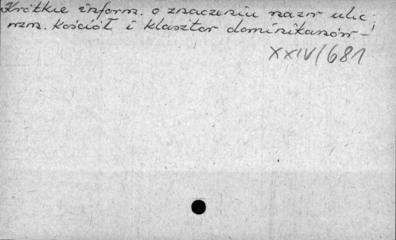 Krótkie inform. o znaczeniu nazw ulic;
wzm. kościół i klasztor dominikanów –
XXIV/681